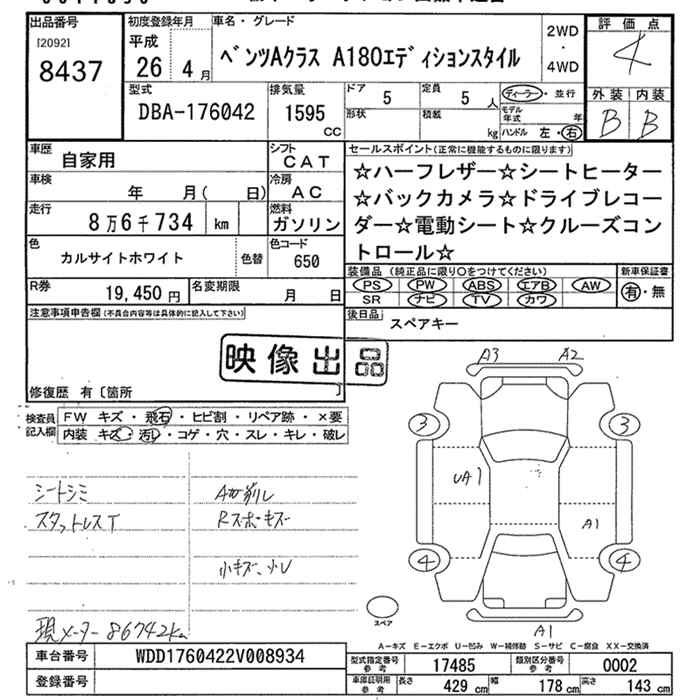 出品番号
[20921
8437
初度登録年月
平成
26年 4月
車名・グレード
ベンツAクラス A180エディションスタイル
2WD
・
4WD
評価点
4
外装 内装
B B
型式
DBA-176042
排気量
1595
CC
ドア
5
定員
5人
形状
積載
kg
ディーラー・並行
モデル年式 年
ハンドル 左・右
車歴
自家用
シフト
CAT
車検
年 月( 日)
冷房
AC
走行
8万6千734 km
燃料
ガソリン
色
カルサイトホワイト
色替
色コード
650
R券
19,450円
名変期限
月 日
セールスポイント(正常に機能するものに限ります)
☆ハーフレザー☆シートヒーター
☆バックカメラ☆ドライブレコー
ダー☆電動シート☆クルーズコン
トロール☆
装備品 (純正品に限り○をつけてください)
PS PW ABS エアB AW
SR ナビ TV カワ
新車保証書
有・無
後日品
スペアキー
注意事項申告欄(不具合内容等は具体的に記入して下さい)
映像出品
修復歴 有〔箇所 〕
検査員
記入欄
FW キズ・飛石・ヒビ割・リペア跡・×要
内装 キズ・汚レ・コゲ・穴・スレ・キレ・破レ
シートシミ
スタットレスT
A加削レ
Rスポーキズ
小キズ、小U
現メーター86742km
A3 A2
3 3
UA1
A1
4 4
スペア
A1
A-キズ E-エクボ U-凹み W-補修跡 S-サビ C-腐食 XX-交換済
車台番号
WDD1760422V008934
登録番号
型式指定番号
参考
17485
類別区分番号
参考
0002
車庫証明用
参考
長さ 429cm 幅 178cm 高さ 143cm